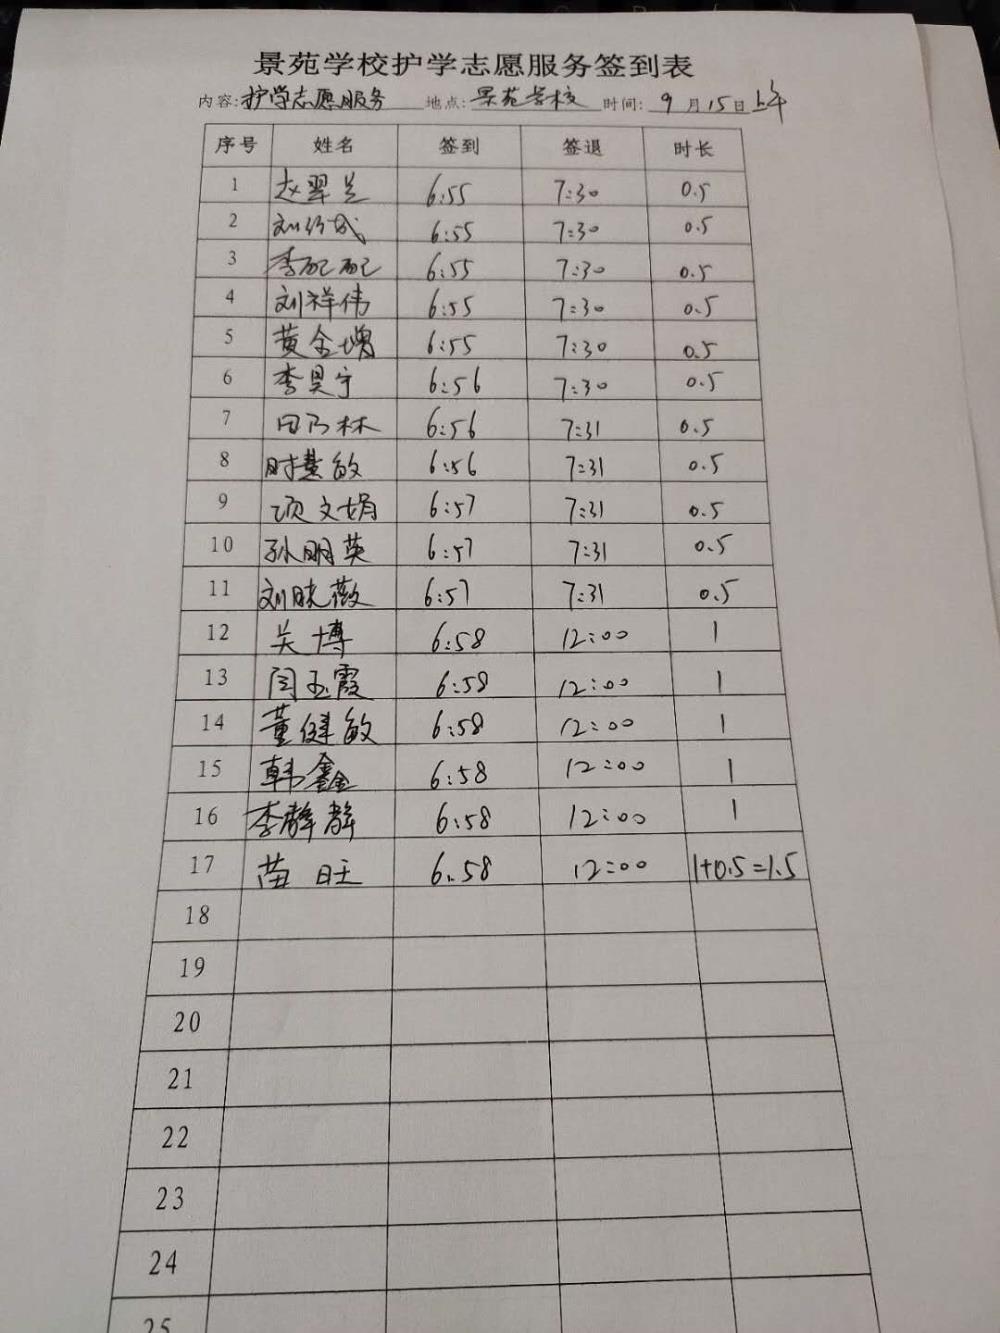 景苑学校护学志愿服务签到表
内容:护学志愿服务 地点:景苑学校 时间: 9月15日上午
序号 姓名 签到 签退 时长
1 赵翠兰 6:55 7:30 0.5
2 刘 6:55 7:30 0.5
3 李配配 6:55 7:30 0.5
4 刘祥伟 6:55 7:30 0.5
5 黄金增 6:55 7:30 0.5
6 李昊宇 6:56 7:30 0.5
7 田乃林 6:56 7:31 0.5
8 时慧敏 6:56 7:31 0.5
9 项文娟 6:57 7:31 0.5
10 孙明英 6:57 7:31 0.5
11 刘晓薇 6:57 7:31 0.5
12 关博 6:58 12:00 1
13 闫玉霞 6:58 12:00 1
14 董健敏 6:58 12:00 1
15 韩鑫 6:58 12:00 1
16 李静静 6:58 12:00 1
17 苗旺 6.58 12:00 1+0.5=1.5
18
19
20
21
22
23
24
25